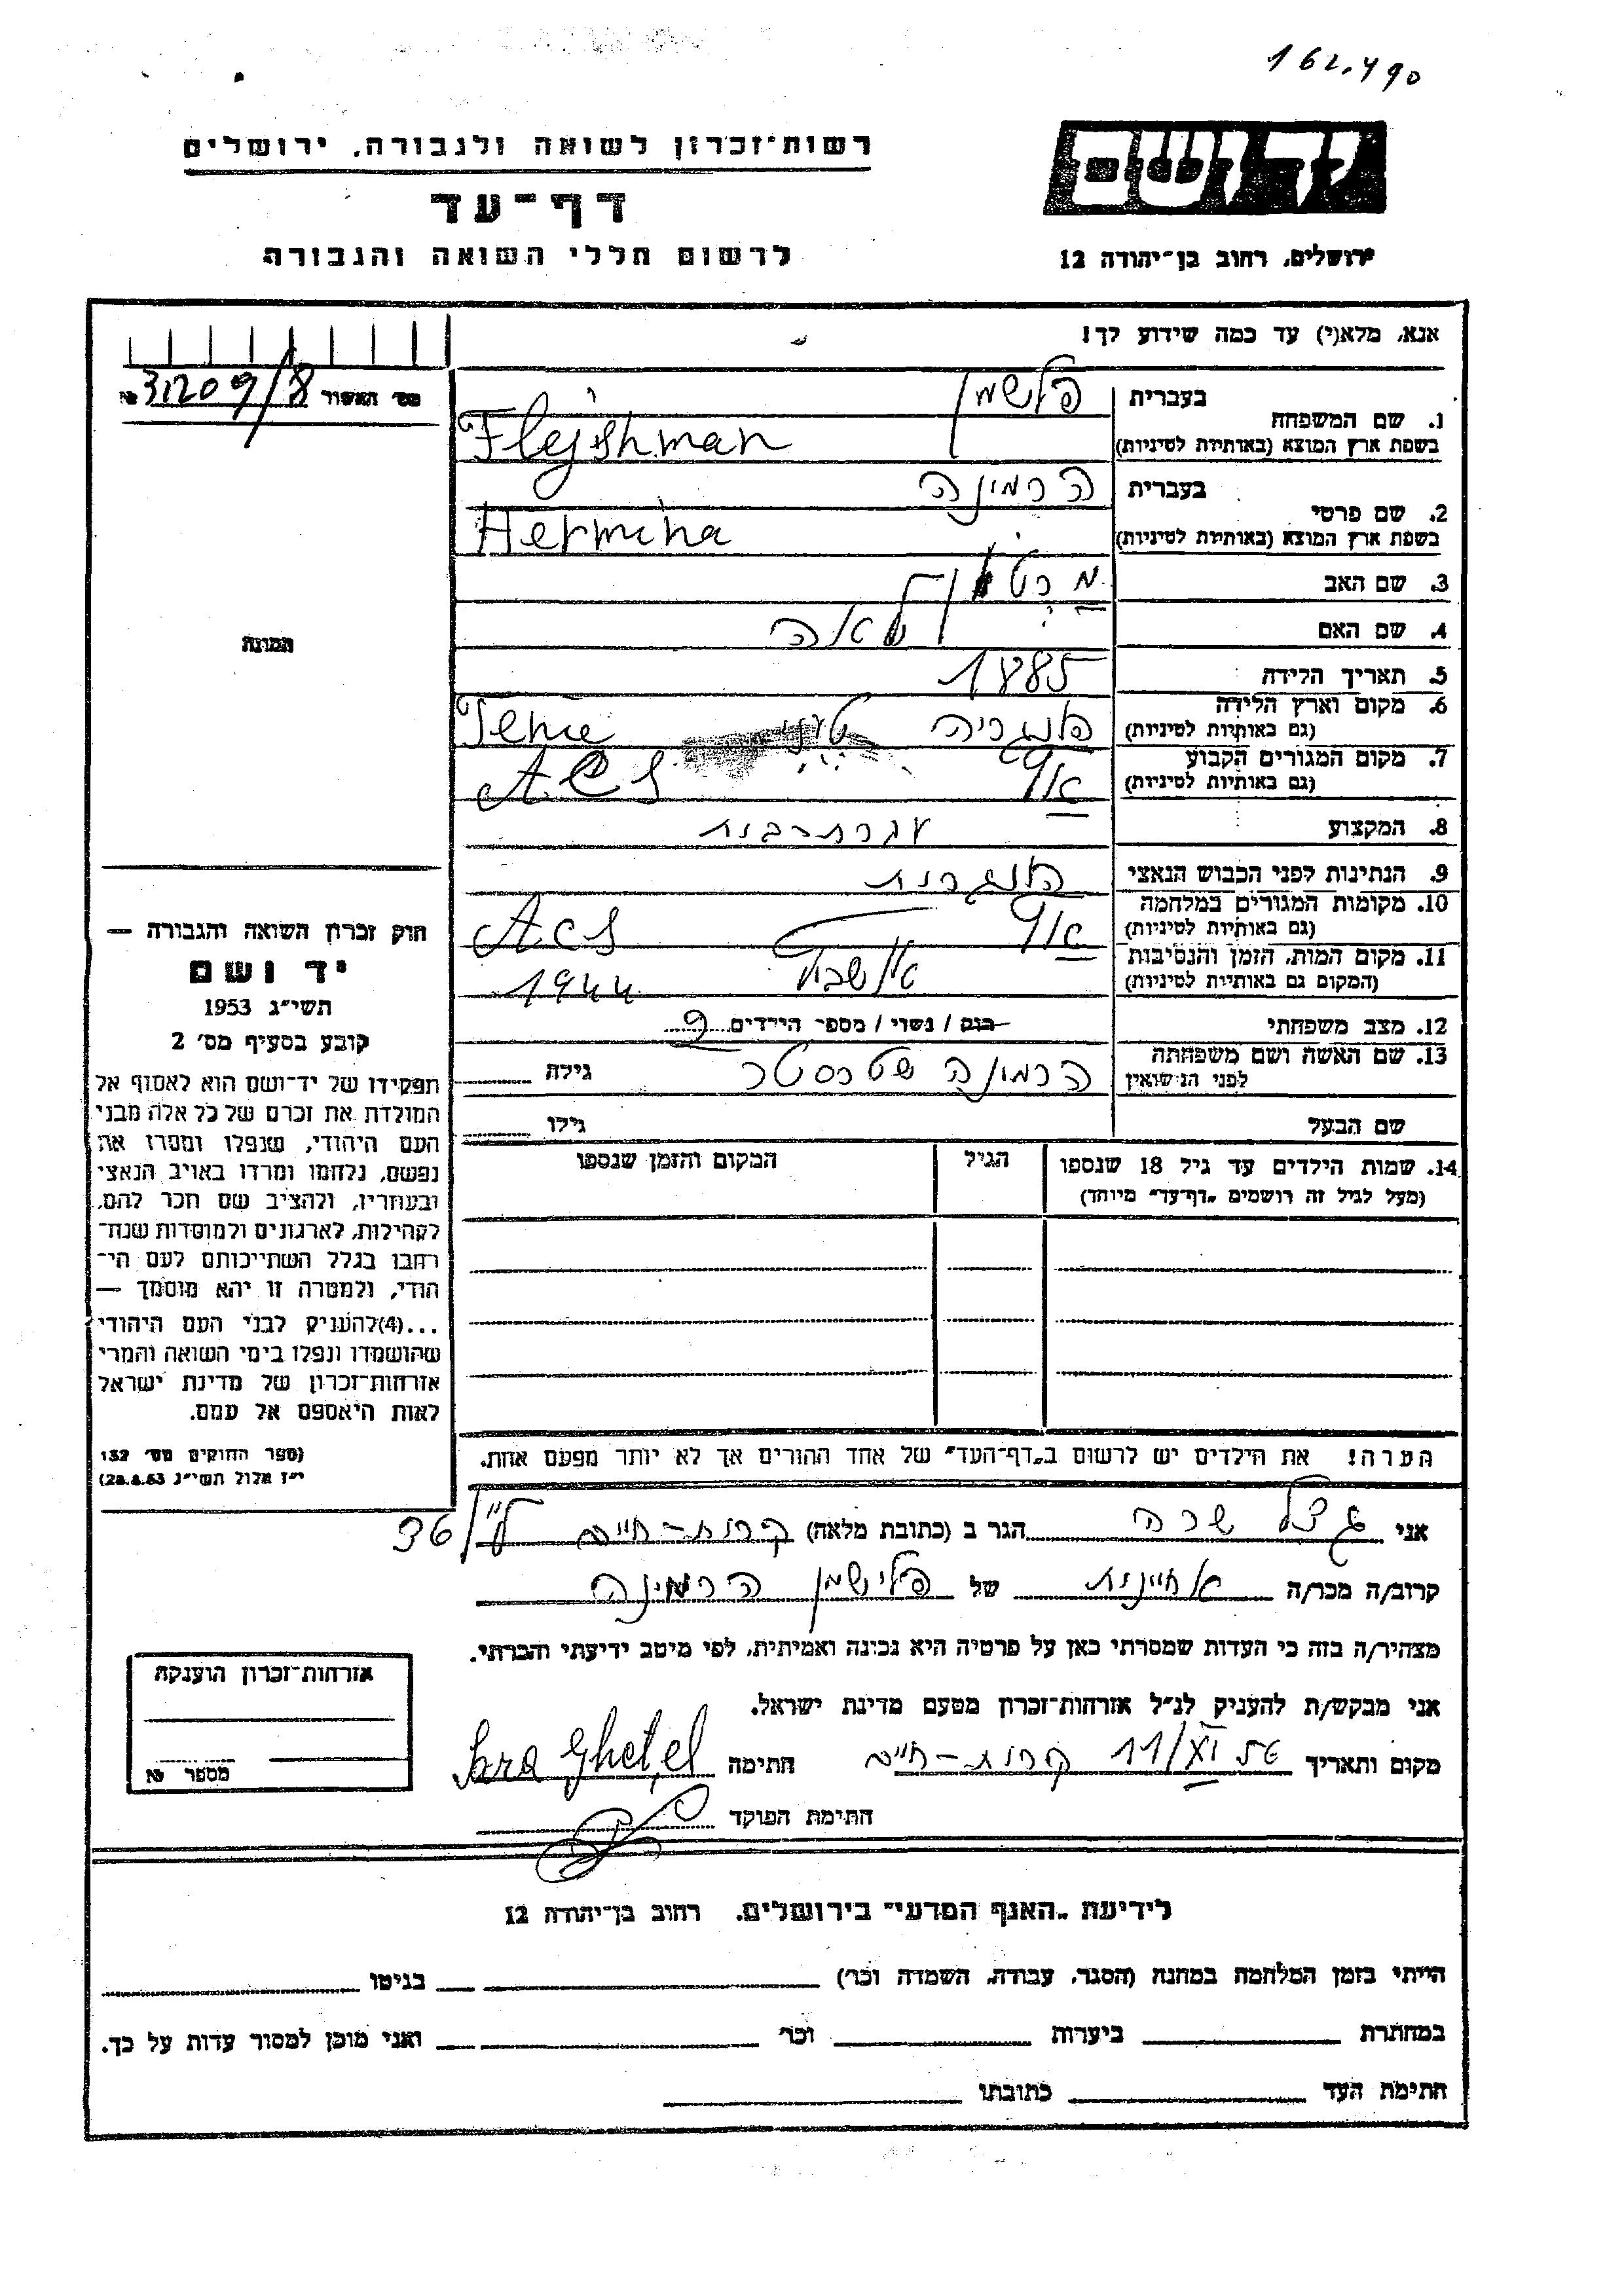 162.490
יד ושם
רשות־זכרון לשואה ולגבורה, ירושלים
דף־עד
לרשום חללי השואה והגבורה
ירושלים, רחוב בן־יהודה 12
אנא, מלא(י) עד כמה שידוע לך!
מס' האשור 31209/8 №
1. שם המשפחה
בעברית פלישמן
בשפת ארץ המוצא (באותיות לטיניות) Flejshman
2. שם פרטי
בעברית הרמינה
בשפת ארץ המוצא (באותיות לטיניות) Hermina
3. שם האב
4. שם האם לאה
5. תאריך הלידה 1885
6. מקום וארץ הלידה
(גם באותיות לטיניות) הונגריה
7. מקום המגורים הקבוע
(גם באותיות לטיניות) אץ' Acs
8. המקצוע עקרת־בית
9. הנתינות לפני הכבוש הנאצי הונגרית
10. מקומות המגורים במלחמה
(גם באותיות לטיניות) אץ' Acs
11. מקום המות, הזמן והנסיבות
(המקום גם באותיות לטיניות) 1944
12. מצב משפחתי רווק / נשוי / מספר הילדים 9
13. שם האשה ושם משפחתה
לפני הנשואין הרמינה גילה
שם הבעל גילו
14. שמות הילדים עד גיל 18 שנספו
(מעל לגיל זה רושמים „דף־עד" מיוחד)
הגיל
המקום והזמן שנספו
הערה! את הילדים יש לרשום ב„דף־העד" של אחד ההורים אך לא יותר מפעם אחת.
תמונה
חוק זכרון השואה והגבורה —
יד ושם
תשי"ג 1953
קובע בסעיף מס' 2
תפקידו של יד־ושם הוא לאסוף אל
המולדת את זכרם של כל אלה מבני
העם היהודי, שנפלו ומסרו את
נפשם, נלחמו ומרדו באויב הנאצי
ובעוזריו, ולהציב שם וזכר להם,
לקהילות, לארגונים ולמוסדות שנח־
רבו בגלל השתייכותם לעם הי־
הודי, ולמטרה זו יהא מוסמך —
...(4)להעניק לבני העם היהודי
שהושמדו ונפלו בימי השואה והמרי
אזרחות־זכרון של מדינת ישראל
לאות היאספם אל עמם.
(ספר החוקים מס' 132
י"ז אלול תשי"ג 28.8.53)
אני גצל שרה הגר ב (כתובת מלאה) קרית-חיים 36
קרוב/ה מכר/ה אחיינית של פלישמן הרמינה
מצהיר/ה בזה כי העדות שמסרתי כאן על פרטיה היא נכונה ואמיתית, לפי מיטב ידיעתי והכרתי.
אני מבקש/ת להעניק לנ"ל אזרחות־זכרון מטעם מדינת ישראל.
מקום ותאריך קרית-חיים 11/XI 56 חתימה Sara Ghetel
חתימת הפוקד
אזרחות־זכרון הוענקה
מספר №
לידיעת „האגף המדעי" בירושלים, רחוב בן־יהודה 12
הייתי בזמן המלחמה במחנה (הסגר, עבודה, השמדה וכו') בגיטו
במחתרת ביערות וכו' ואני מוכן למסור עדות על כך.
חתימת העד כתובתו